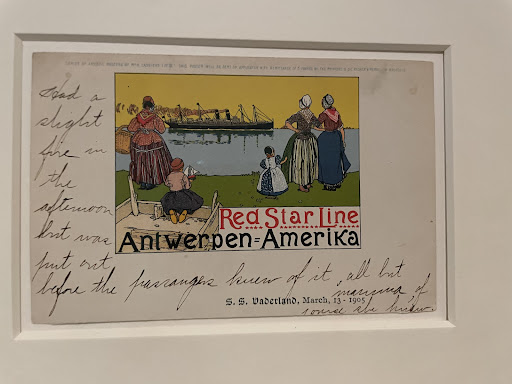 Had a
slight
fire in
the
afternoon
but was
put out
before the passangers knew of it, all but
"mamma", of
course she knew.
Red Star Line
Antwerpen=Amerika
S. S. Vaderland, March, 13 - 1905